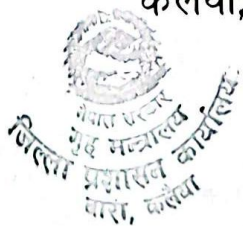 कलैया,
नेपाल सरकार
गृह मन्त्रालय
जिल्ला प्रशासन कार्यालय
बारा, कलैया